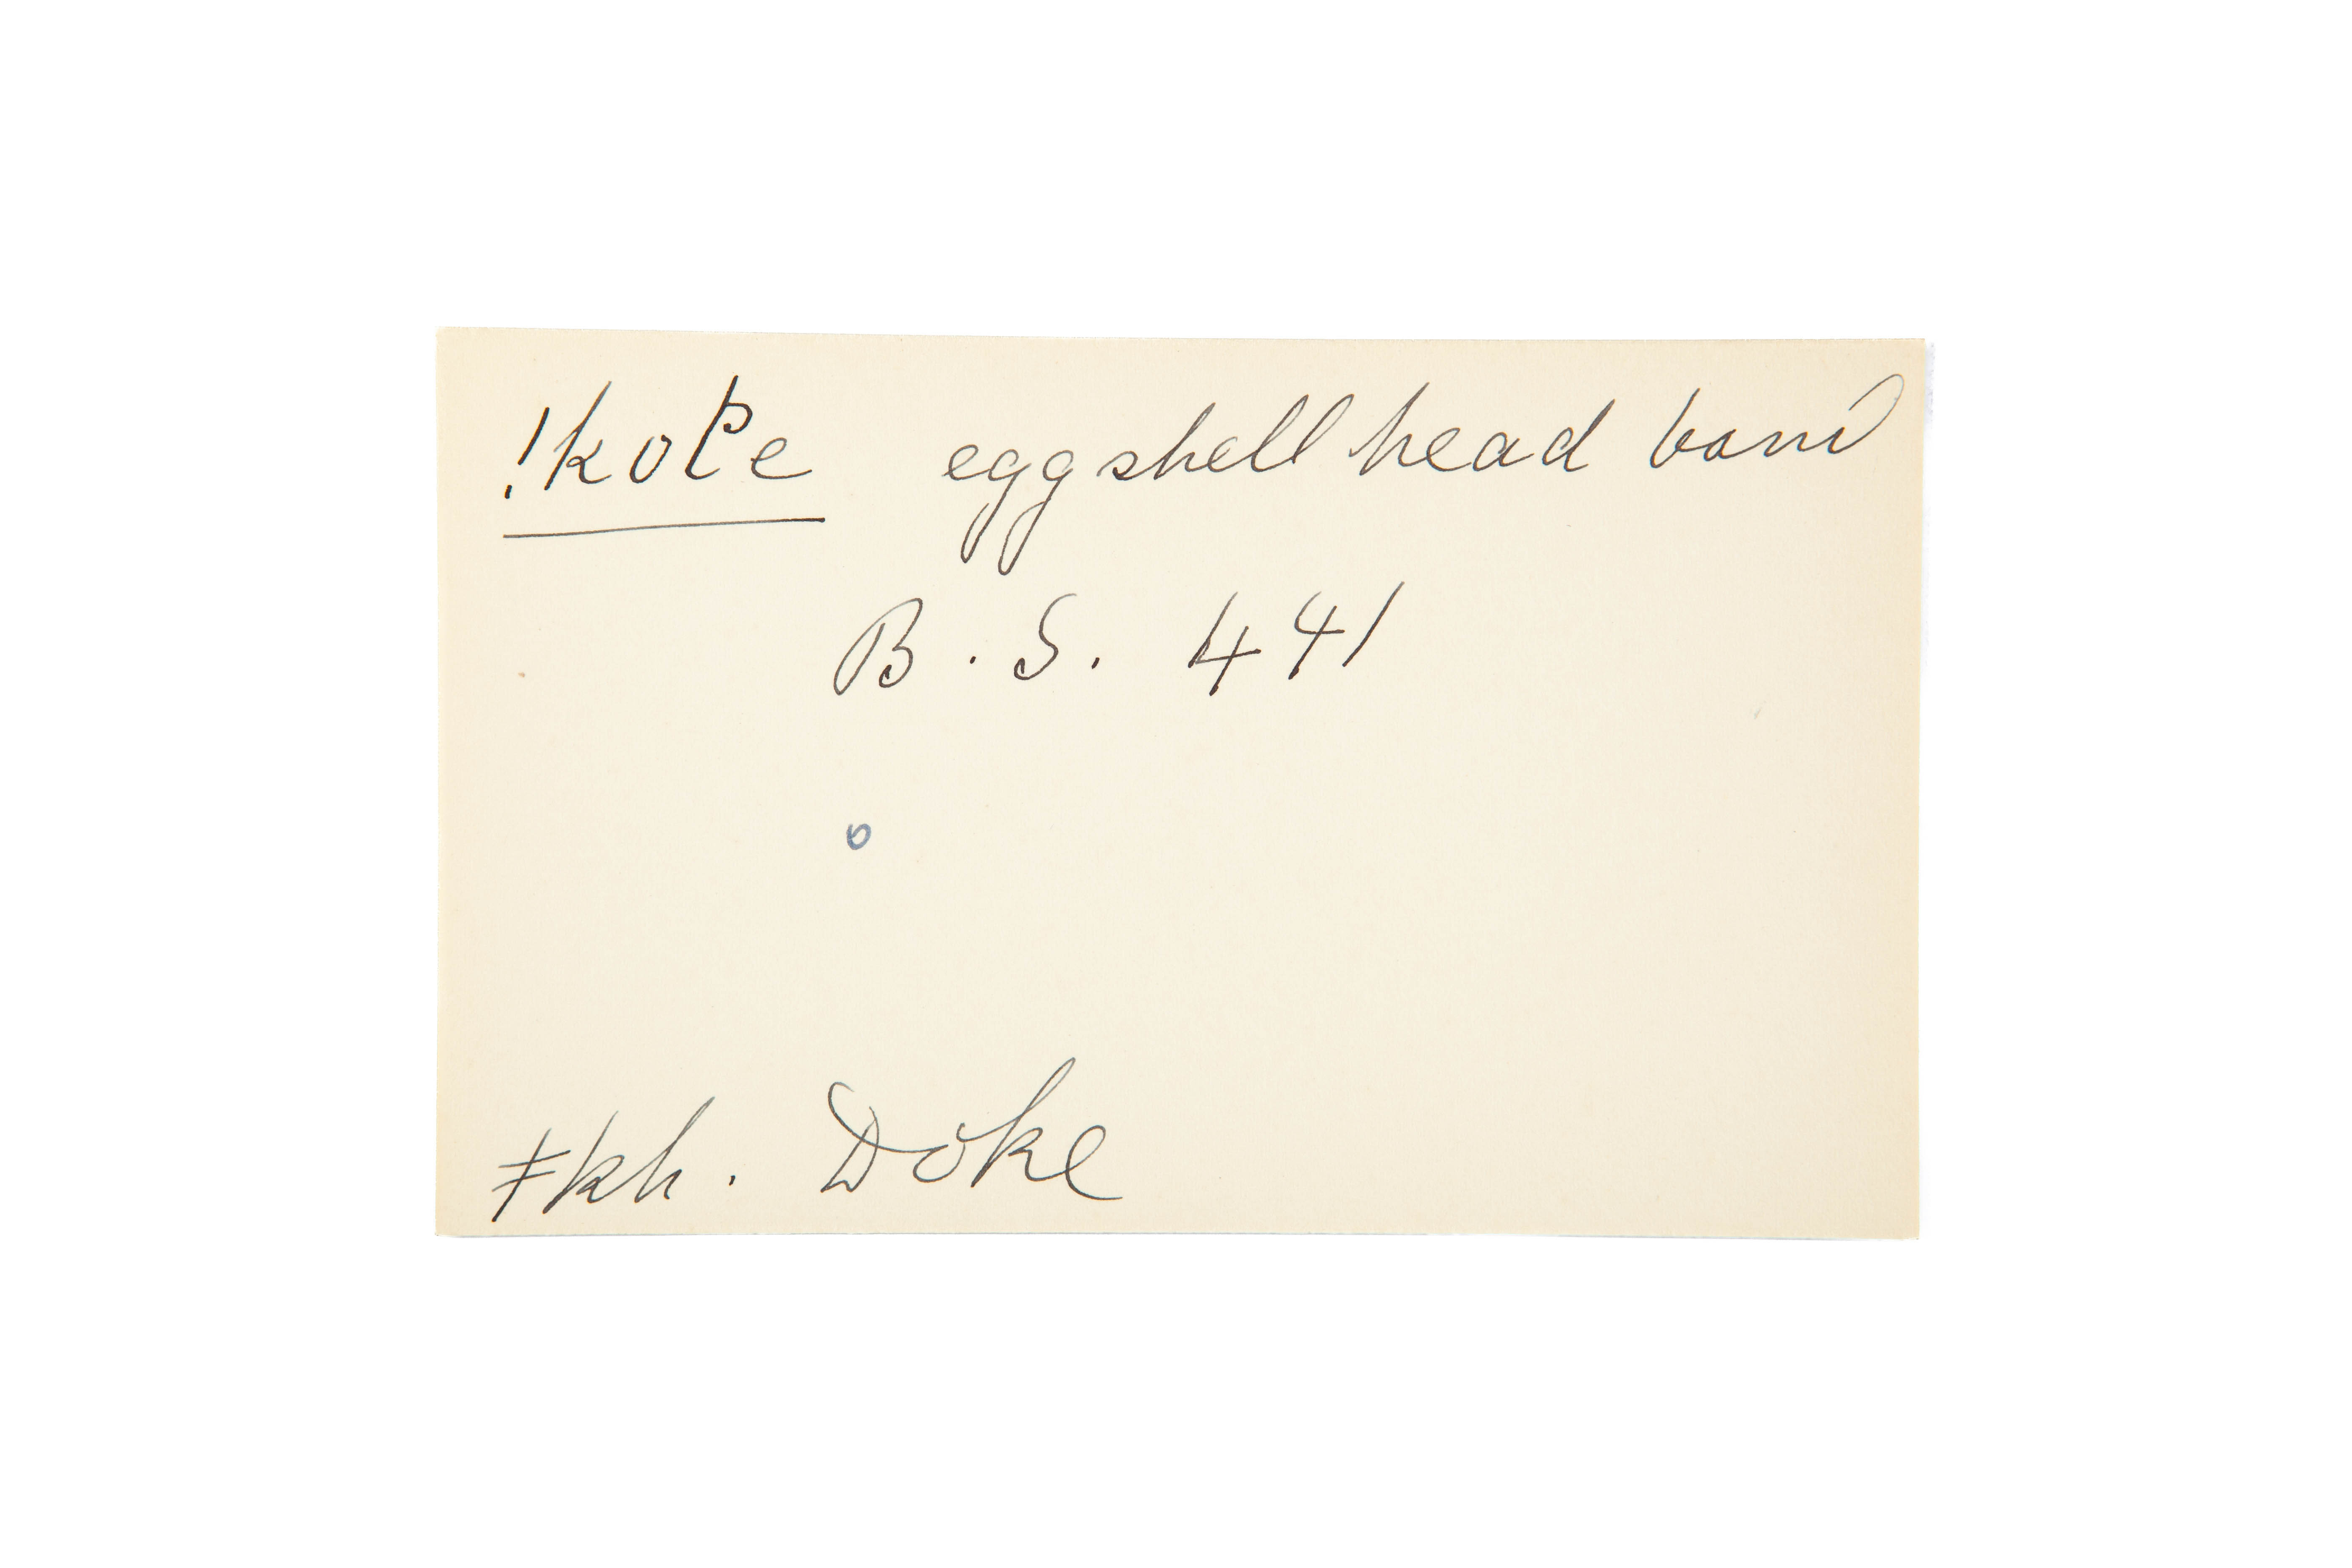 !koʗe eggshell head band
B. S. 441
o
ǂkh. Doke